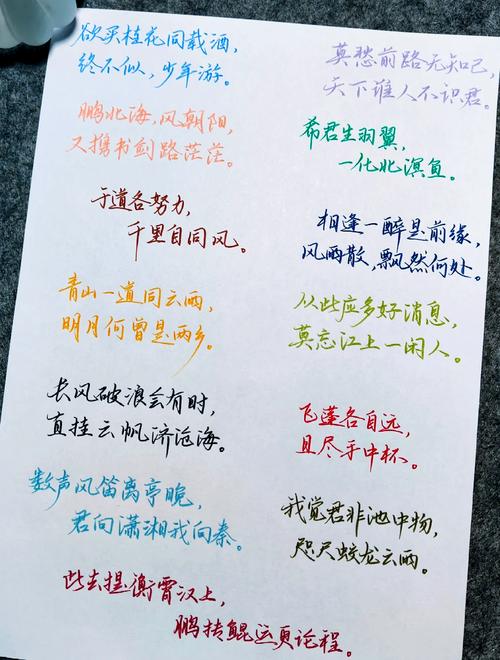 欲买桂花同载酒，
终不似，少年游。
鹏北海，风朝阳，
又携书剑路茫茫。
于道各努力，
千里自同风。
青山一道同云雨，
明月何曾是两乡。
长风破浪会有时，
直挂云帆济沧海。
数声风笛离亭晚，
君向潇湘我向秦。
莫愁前路无知己，
天下谁人不识君。
希君生羽翼，
一化北溟鱼。
相逢一醉是前缘，
风雨散，飘然何处。
从此应多好消息，
莫忘江上一闲人。
飞蓬各自远，
且尽手中杯。
我觉君非池中物，
咫尺蛟龙云雨。
此去提衡霄汉上，
鹏抟鲲运更论程。